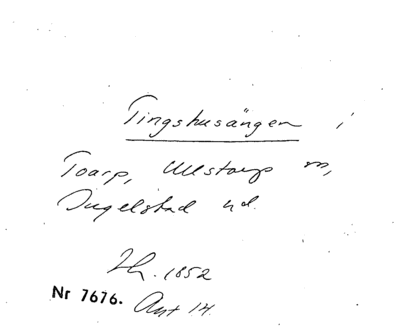 Tingshusängen i
Toarp, Ullstorps sn,
Ingelstad hd.
Lh. 1852
Nr 7676. Ant 14